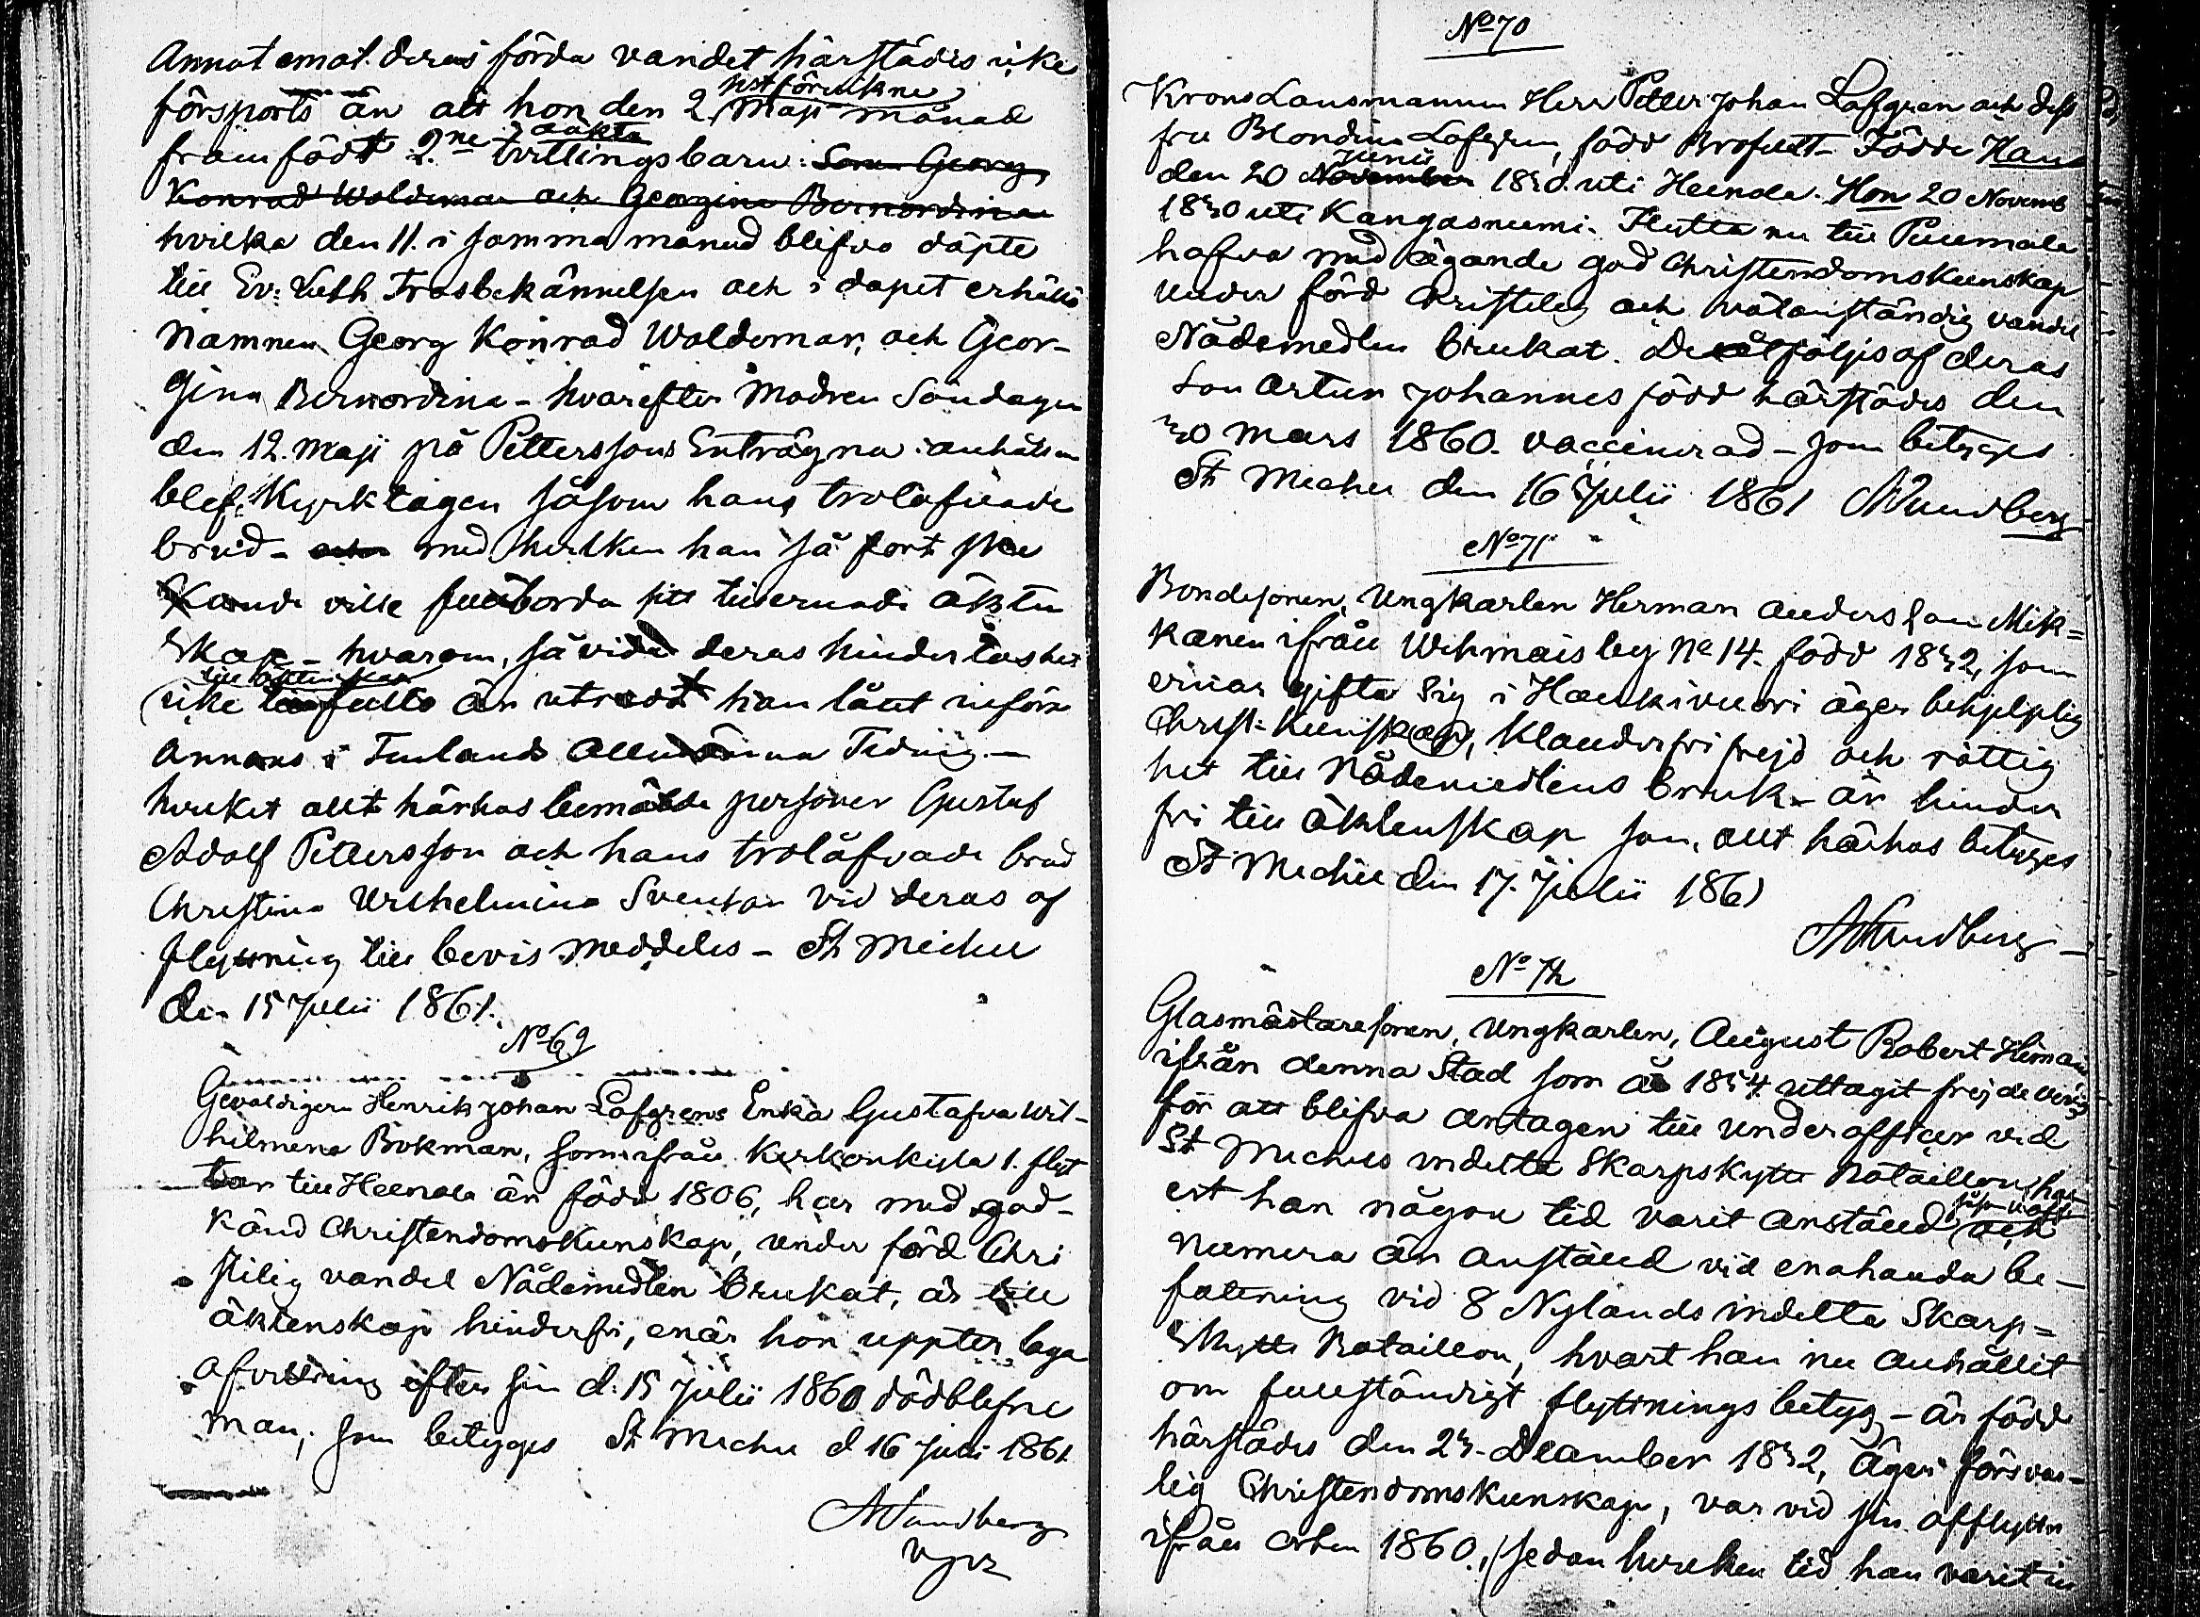 Annat emot deras förda vandel härstädes icke
försports än att hon den 2 Maji nästförvikne månad
framfödt 2ne oäkta tvillingsbarn: Sonen Georg
Konrad Woldemar och Georgina Bernordina
hvilka den 11. i samma månad blifva döpte
till Ev: Luth Trosbekännelsen och i dopet erhållit
Namnen Georg Konrad Woldemar, och Geor-
gina Bernordina - hvarefter Modren Söndagen
den 12. Maji på Petterssons Enträgna anhållan
blef Kyrktagen såsom hans trolofvade
brud - med hvilken han så fort ske
Kunde ville fullborda sitt tillernade äkten
skap - hvarom, så vida deras hinderlöshet
till äktenskap icke är utredt han låtit införa
Annons i Finlands Allmänna Tidning -
hvilket allt härhos bemälde personer Gustaf
Adolf Pettersson och hans trolåfvade brud
Christina Wilhelmina Svensson vid deras af
flyttning till bevis meddeles - St Michel
den 15 Julii 1861.
No 69
Gevaldigern Henrik Johan Lofgrens Enka Gustafva Wil-
helmina Bokman, som ifrån Kyrkonkylä 1. flyt
tar till Heinola är född 1806, har med god-
känd Christendomskunskap, under förd Chri
stilig vandel Nådemedlen brukat, är till
äktenskap hinderfri, enär hon uppter laga
afvittring efter sin d. 15 Julii 1860 dödblefne
man, som betygges St Michel d 16 Juli 1861
A Sundberg
No 70
KronoLänsmannen Herr Petter Johan Lofgren och dess
fru Blondina Lofgren, född Brofeldt - Födde Han
den 20 November Junii 1830 uti Heinola. Hon 20 Novemb
1830 uti Kangasniemi. Flytta nu till Puumala
hafva med ägande god Christendomskunskap
under förd Christelig och välanständig vandel
Nådemedlen brukat. De åtföljes af deras
Son Artur Johannes född härstädes den
30 Mars 1860. vaccinerad - som betyges
St Michel den 16 Julii 1861 A Sundberg
No 71
Bondesonen, Ungkarlen Herman Andersson Mik=
kanen ifrån Wehmais by No 14. född 1832, som
ernar gifta sig i Haukivuori äger behjelplig
Christ: Kunskap, Klanderfri frejd och rättig
het till Nådemedlens bruk - är hinder
fri till äktenskap som, allt härhos betyges
St Michel den 17. Julii 1861
A Sundberg -
No 72
Glasmästaresonen, Ungkarlen, August Robert Himan
ifrån denna Stad som år 1854 uttagit frejdebevis
för att blifva antagen till Underofficer vid
St Michels indelta Skarpskytte Bataillon har
est han någon tid varit anställd såsom och
numera är anställd vid enahanda be-
fattning vid 8 Nylands indelta Skarp=
Skytte Bataillon, hvart han nu anhållit
om fullständigt flyttnings betyg - är född
härstädes den 23. December 1832, Äger försvar-
lig Christendomskunskap, var vid sin afflyttn
ifrån orten 1860, (sedan hvilken tid han varit in